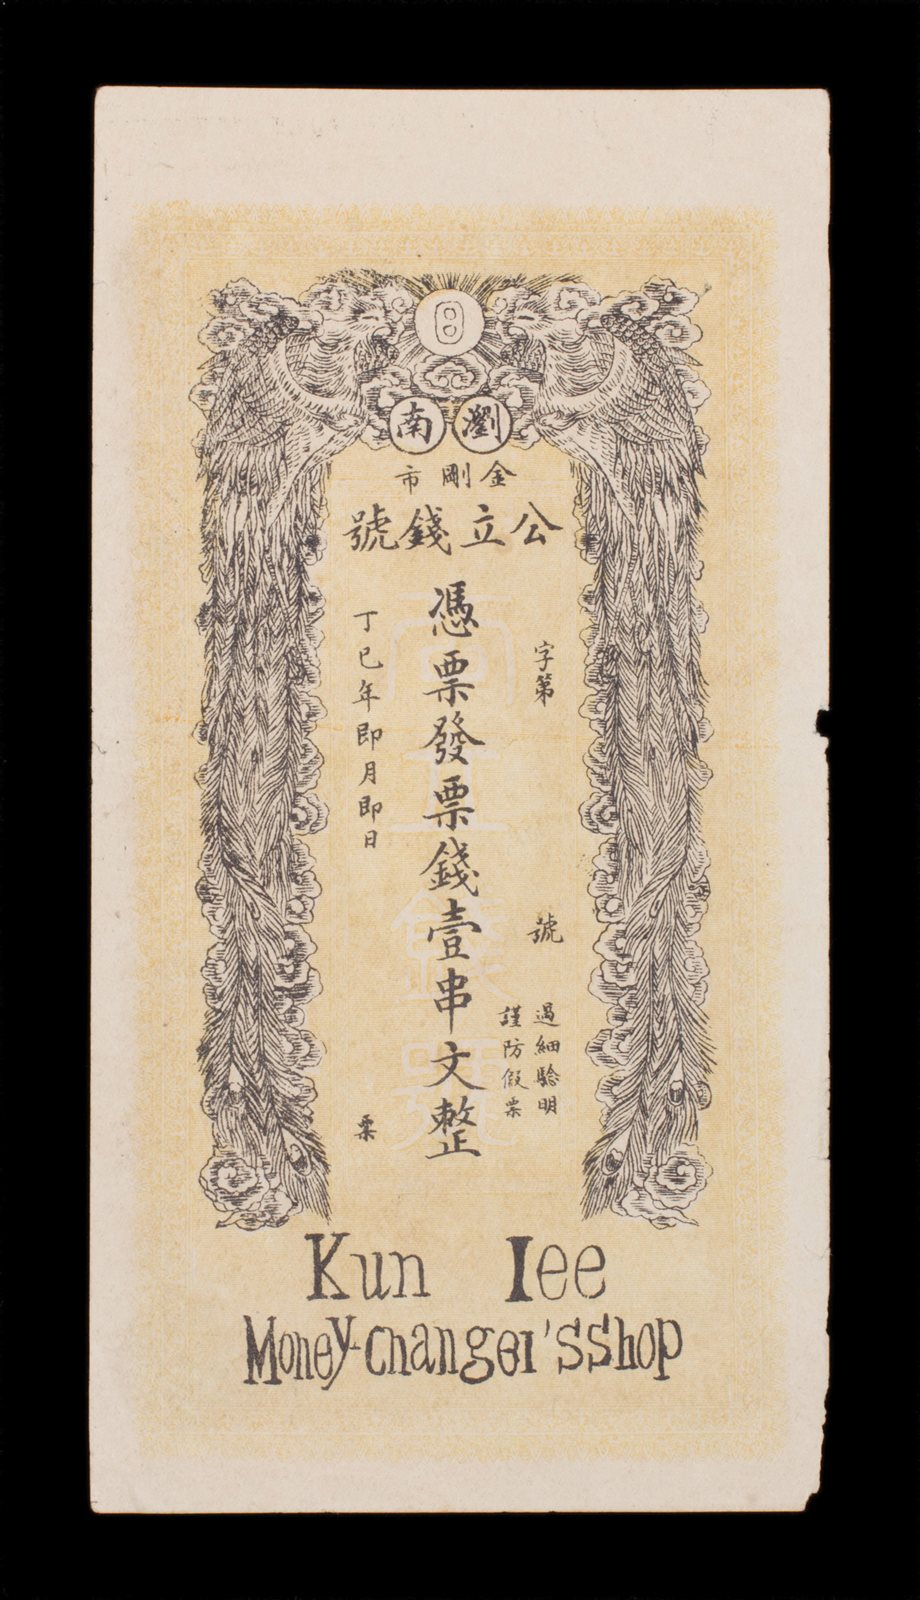 瀏南
金剛市
公立錢號
字第
號
過細驗明
謹防假票
憑票發票錢壹串文整
丁巳年即月即日
票
Kun Iee
Money-Changei'sShop